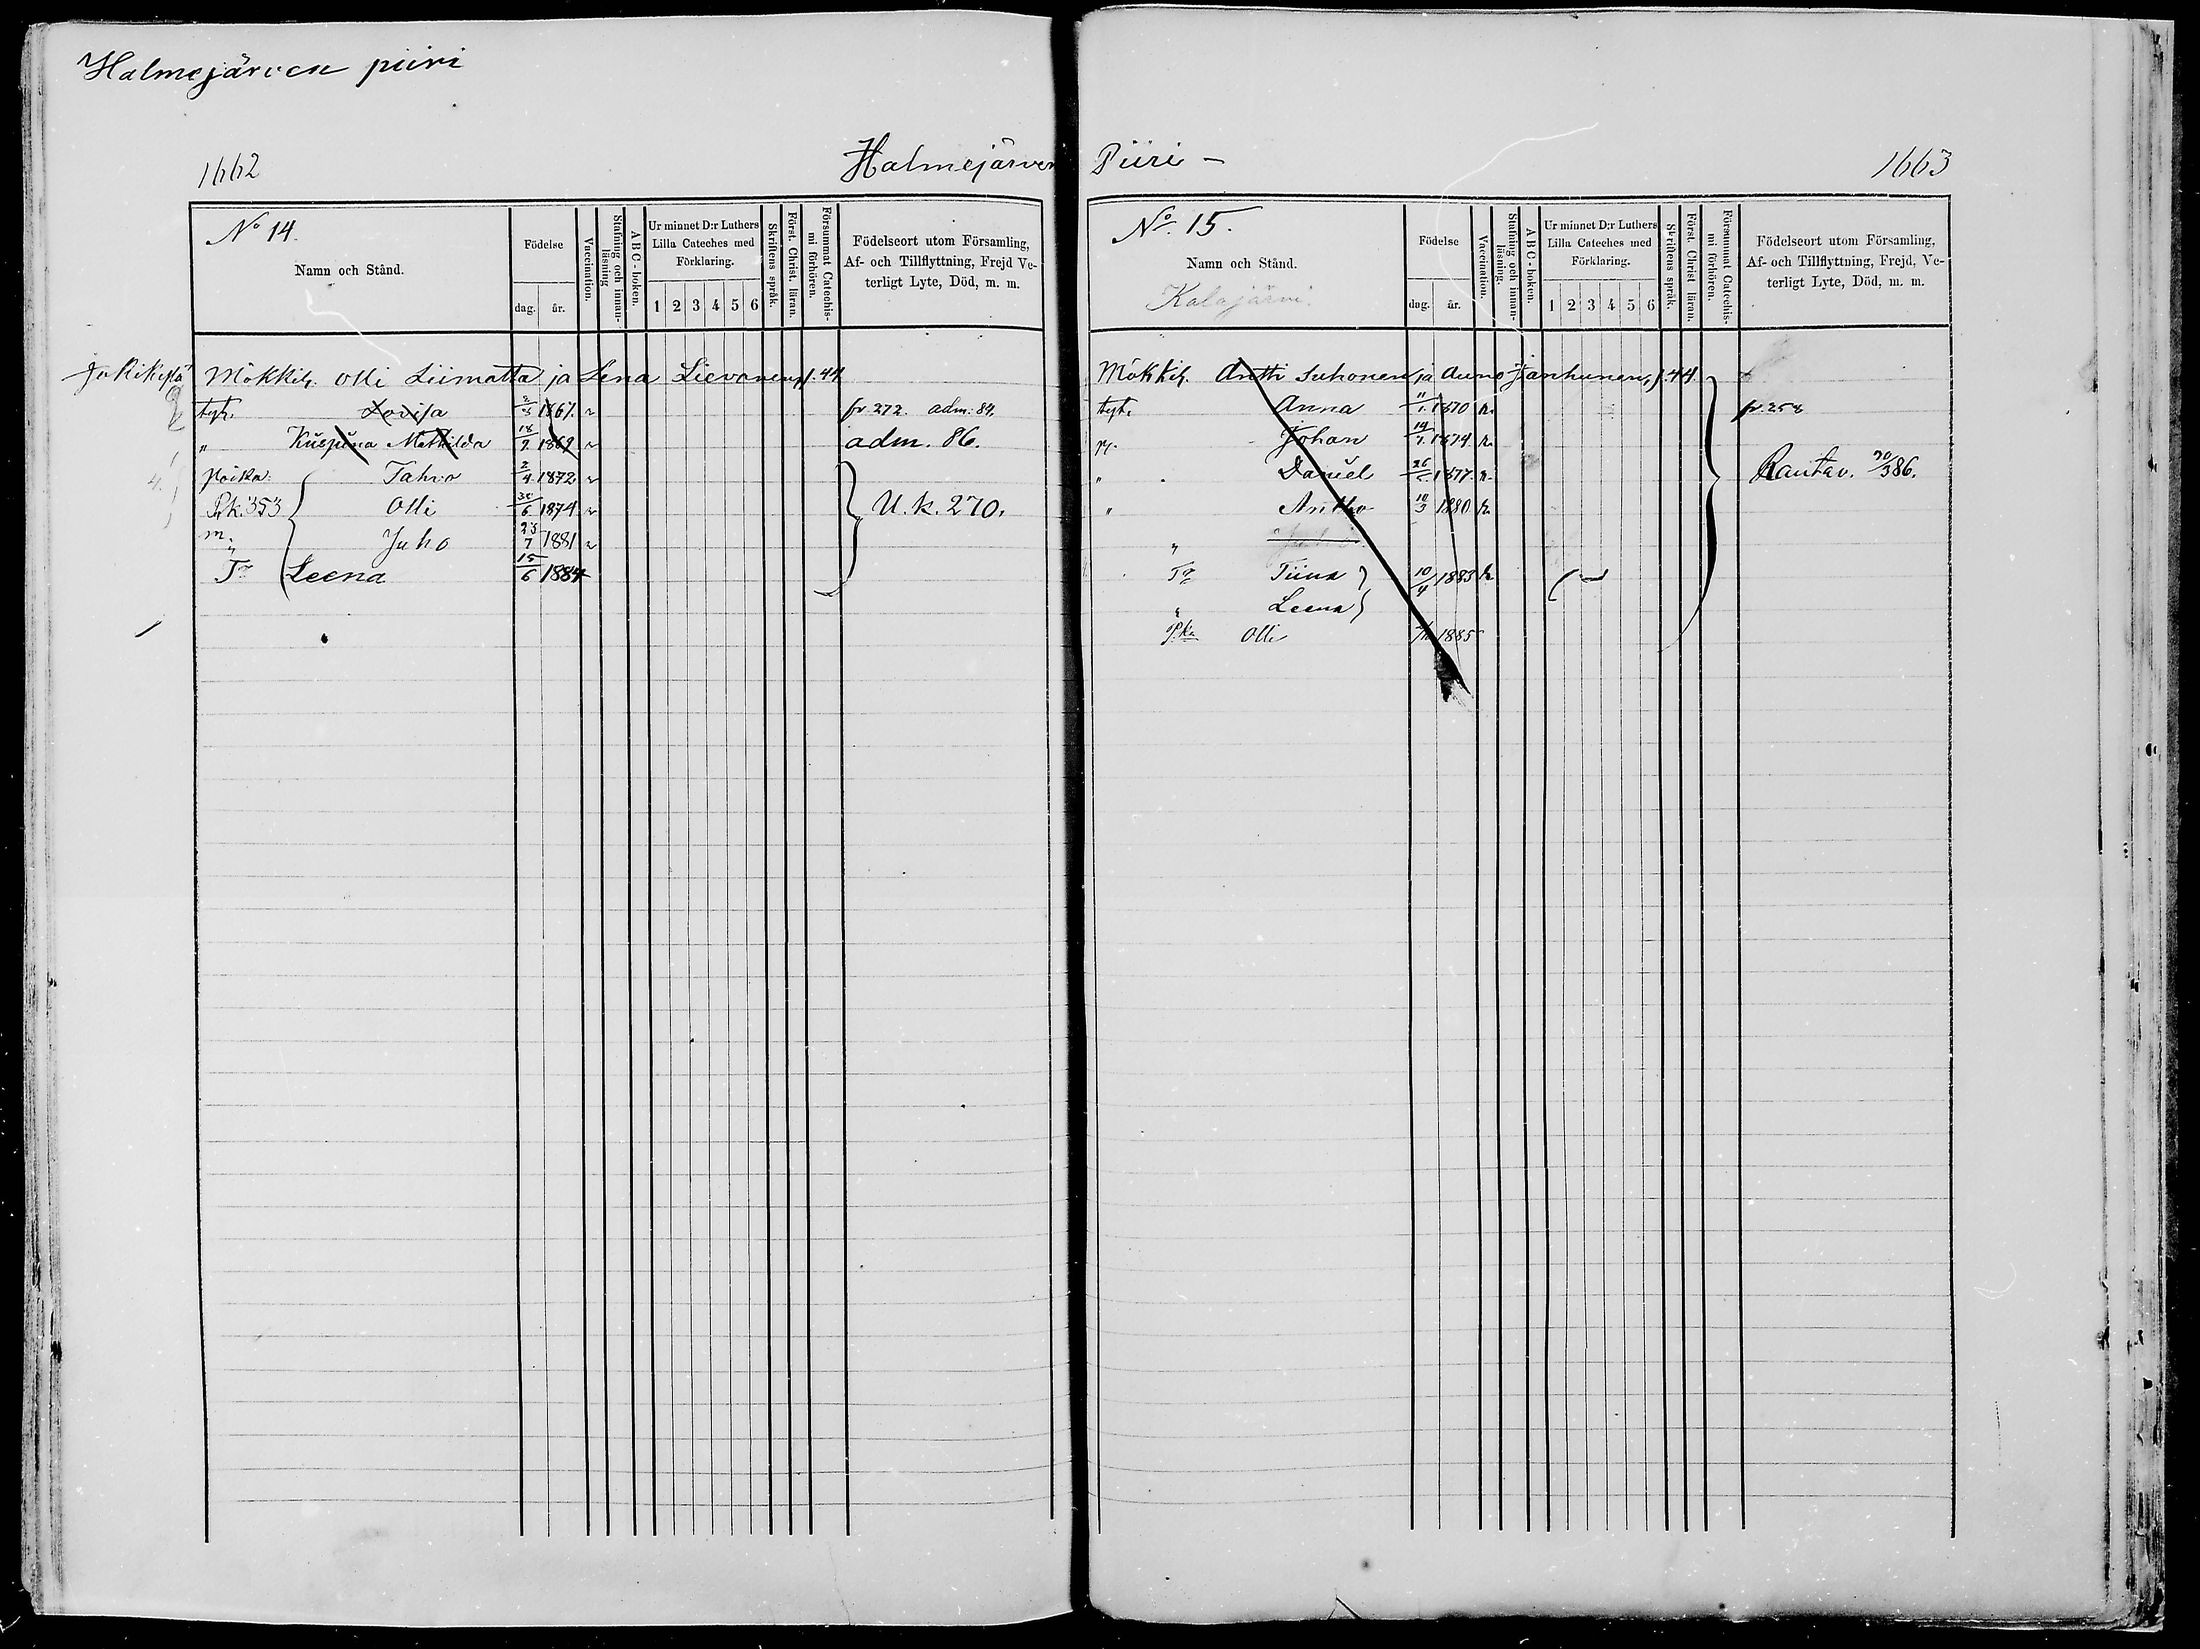 Halmejärven piiri
1662
Halmejärven
No 14.
Namn och Stånd.
Födelse
dag. år.
Vaccination.
Stafning och innan-läsning
A B C-boken.
Ur minnet D:r Luthers Lilla Cateches med Förklaring.
1 2 3 4 5 6
Skriftens språk.
Först. Christ. lära.
Försummat Catechis-mi förhören.
Födelseort utom Församling,
Af- och Tillflyttning, Frejd Ve-
terligt Lyte, Död, m. m.
Mökkil. Olli Liimatta ja Lena Lievonen, 44
tyt. Lovisa 1867. fr. 272. adm. 84.
" Mathilda 18/2 1869 adm. 86.
poika: Tahvo 2/4 1872
Rk. 353 Olli 30/6 1874 U. k. 270.
m. " Juho 23/7 1881
Tr Leena 15/6 1884
Piiri -
1663
No. 15.
Namn och Stånd.
Kalajärvi.
Födelse
dag. år.
Vaccination.
Stafning och innan-läsning.
A B C-boken.
Ur minnet D:r Luthers Lilla Cateches med Förklaring.
1 2 3 4 5 6
Skriftens språk.
Först. Christ lära.
Försummat Catechis-mi förhören.
Födelseort utom Församling,
Af- och Tillflyttning, Frejd, Ve-
terligt Lyte, Död, m. m.
Mökkil. Antti Suhonen ja Anna Janhunen, 44
tyt. Anna 11/1 1870 fr. 258
p. Johan 14/7 1874
" Daniel 26 1877 Rautav. 30/3 86.
" Anttho 10/3 1880
"
Tr Tiina 10/4 1883
" Leena
P.ka Olli 1885